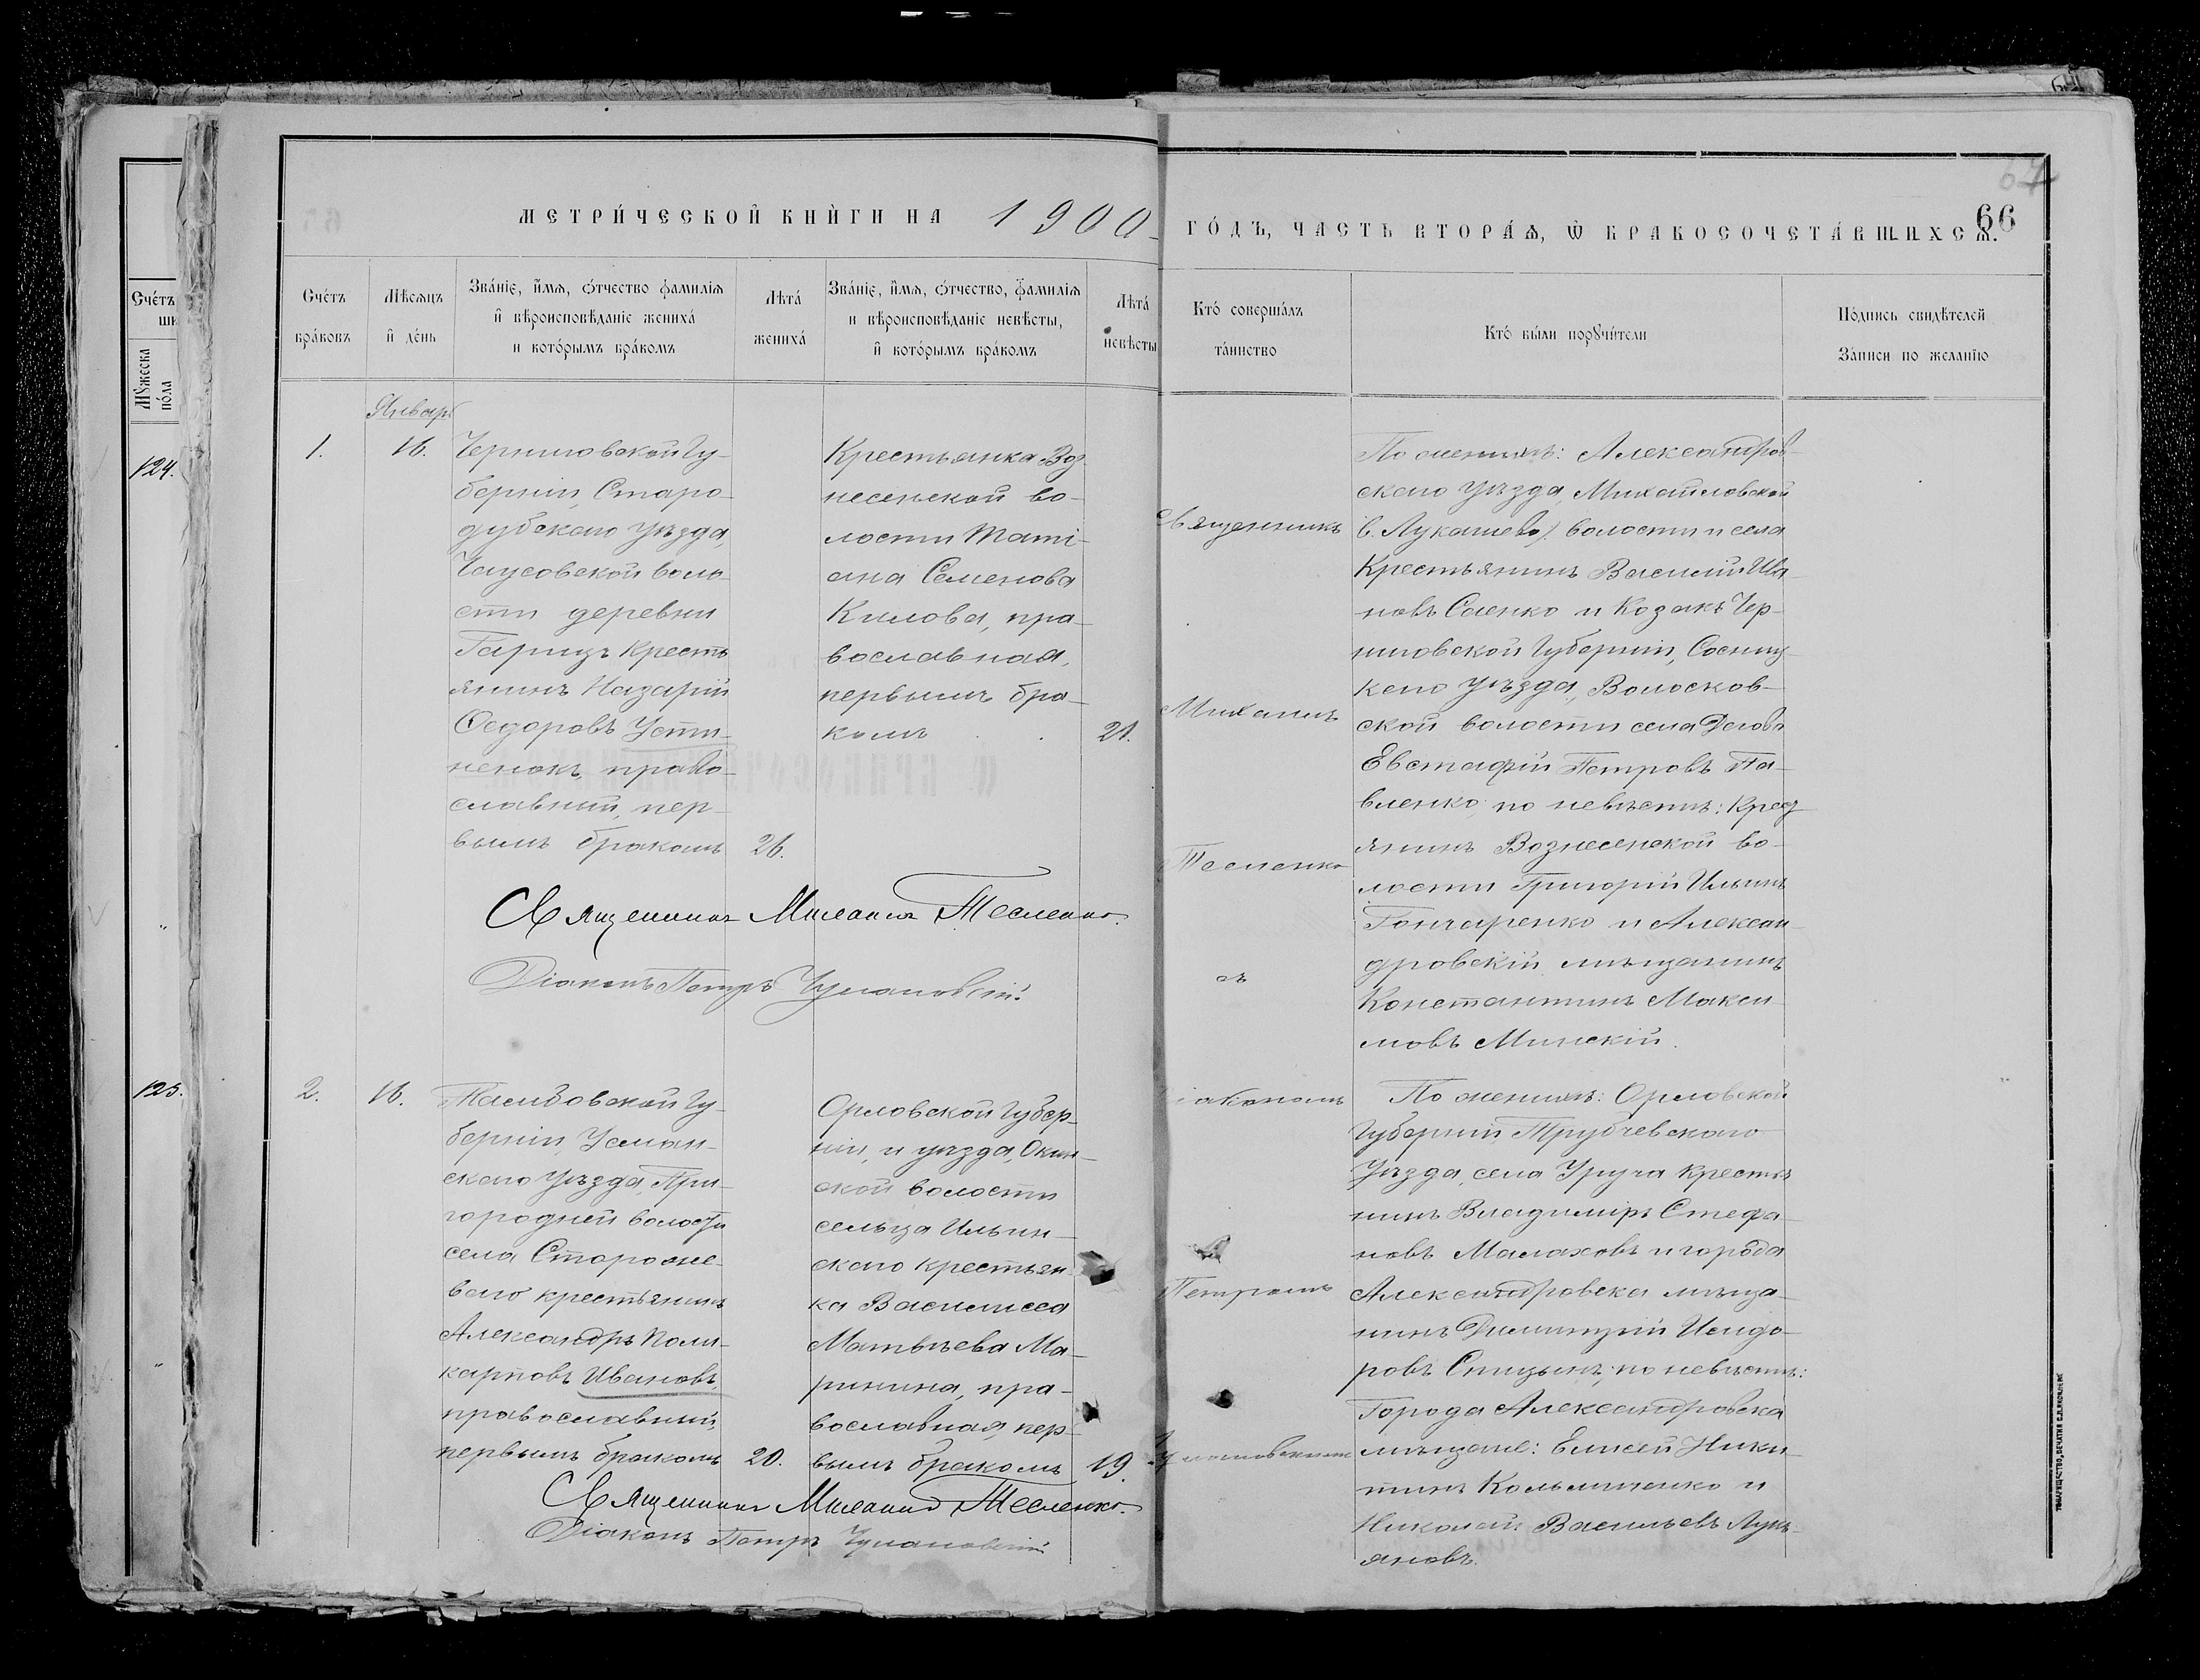 МЕТРИ́ЧЕСКОЙ КНИ́ГИ НА 1900
ГО́ДЪ, ЧАСТЬ ВТОРА́Ѧ, Ѡ БРАКОСОЧЕТА́ВШИХСѦ.
66
Сче́тъ
бра́ковъ
Мѣсѧцъ
и де́нь
Зва́нїе, и́мѧ, ѻ́тчество фамилїѧ
и вѣроисповѣданїе жениха̀
и кото́рымъ бра́комъ
Лѣта̀
жениха̀
Зва́нїе, и́мѧ, ѻ́тчество, фамилїѧ
и вѣроисповѣданїе невѣсты,
и кото́рымъ бра́комъ
Лѣта̀
невѣсты
Кто̀ соверша́лъ
та́инство
Кто̀ бы́ли порꙋчи́тели
По́дпись свидѣтелей
За́писи по желанїю
Сче́тъ
Мꙋжеска
по́ла
124.
125.
Январь
1.
16.
Черниговской Гу-
берніи, Старо-
дубскаго Уѣзда,
Чаусовской воло-
сти деревни
Гарицъ Кресть
янинъ Назарій
Ѳедоровъ Усти-
ненокъ, право-
славный, пер-
вымъ бракомъ
26.
Крестьянка Воз
несенской во-
лости Таті-
ана Семенова
Килова, пра-
вославная,
первымъ бра-
комъ
21.
Священникъ
Михаилъ
Тесленко
съ
По женихѣ: Александров-
скаго Уѣзда, Михайловской
(. Лукашево) волости и села
Крестьянинъ Василій Ива
новъ Саенко и Козакъ Чер-
ниговской Губерніи, Сосниц-
каго Уѣзда, Волосков-
ской волости села
Евстафій Петровъ Па-
вленко; по невѣстѣ: Крест
янинъ Вознесенской во-
лости Григорій Ильинъ
Гончаренко и Алексан-
дровскій мѣщанинъ
Константинъ Макси-
мовъ Минскій.
Священникъ Михаилъ Тесленко.
Діаконъ Петръ Чулановскій.
2.
16.
Тамбовской Гу-
берніи, Усман-
скаго Уѣзда, При-
городней волости
села Стороже-
ваго крестьянинъ
Александръ Поли-
карповъ Ивановъ,
православный,
первымъ бракомъ
20.
Орловской Губер-
ніи, и уѣзда,
ской волости
сельца Ильин-
скаго крестьян
ка Василиса
Матвѣева Ма-
ринина, пра-
вославная, пер-
вымъ бракомъ
19.
іакономъ
Петромъ
По женихѣ: Орловской
Губерніи Трубчевскаго
Уѣзда, села Уруча кресть
нинъ Владиміръ Стефа-
новъ Малаховъ и города
Александровска мѣща-
нинъ Димитрій Исидо-
ровъ Спицынъ; по невѣстѣ:
Города Александровска
мѣщане: Елисей Ники-
тинъ Кольминенко и
Николай Васильевъ Лукь-
яновъ.
Священникъ Михаилъ Тесленко.
Діаконъ Петръ Чулановскій